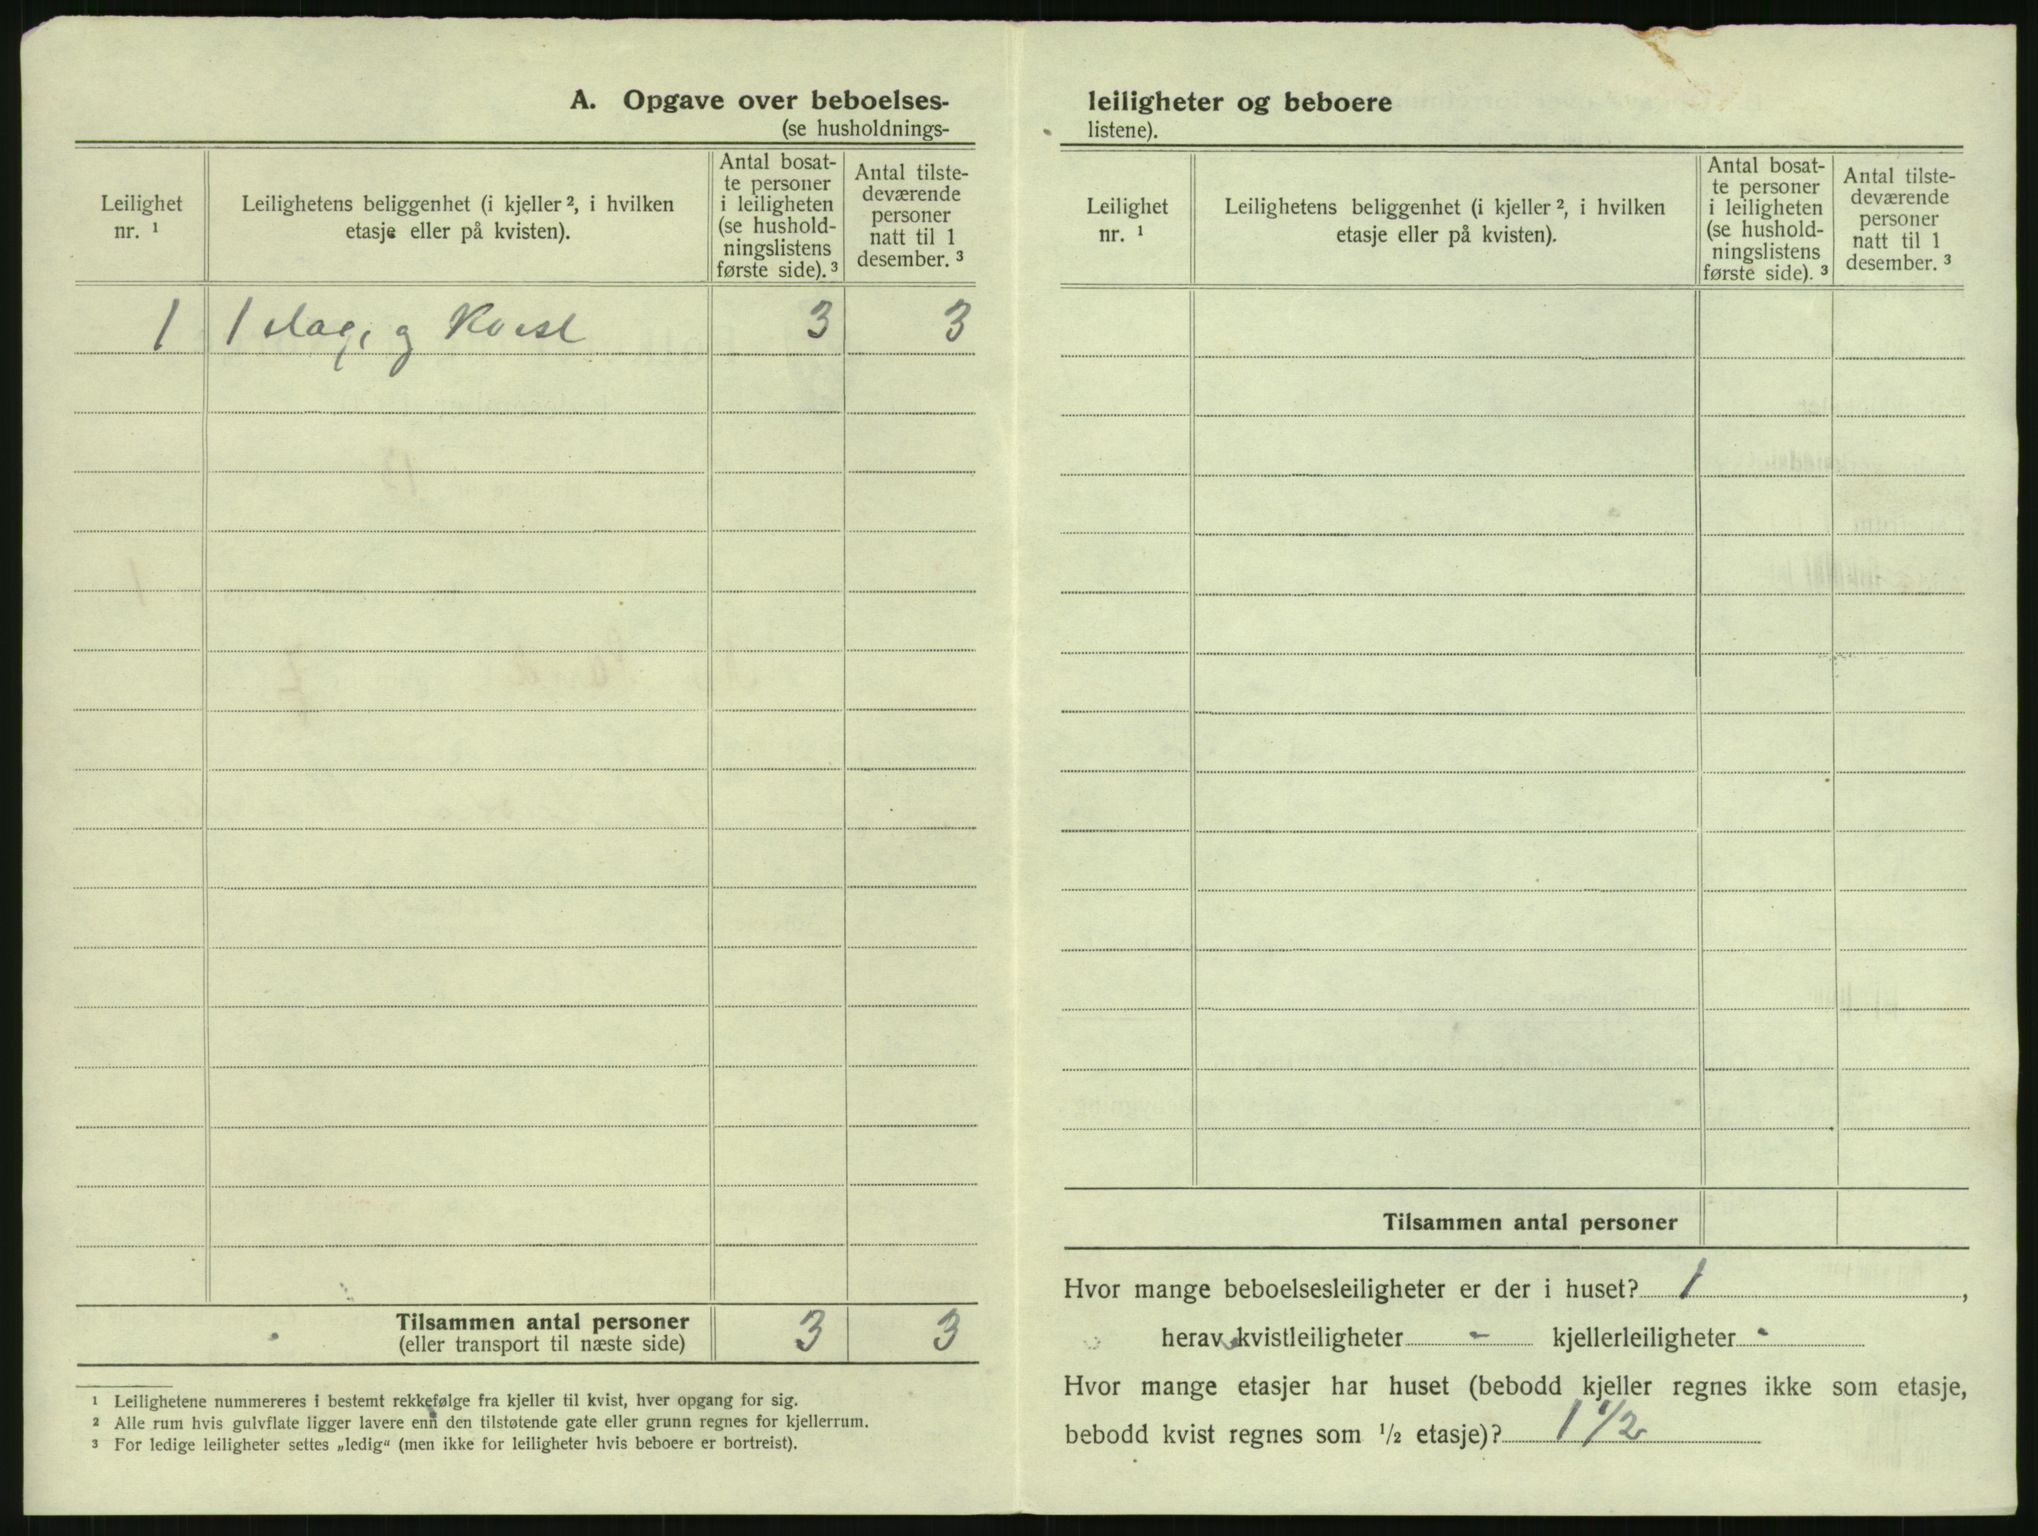 A. Opgave over beboelses-
(se husholdnings-
Leilighet
nr. ¹
Leilighetens beliggenhet (i kjeller ², i hvilken
etasje eller på kvisten).
Antal bosat-
te personer
i leiligheten
(se hushold-
ningslistens
første side). ³
Antal tilste-
deværende
personer
natt til 1
desember. ³
1 1 etag, og Kvist 3 3
Tilsammen antal personer 3 3
(eller transport til næste side)
¹ Leilighetene nummereres i bestemt rekkefølge fra kjeller til kvist, hver opgang for sig.
² Alle rum hvis gulvflate ligger lavere enn den tilstøtende gate eller grunn regnes for kjellerrum.
³ For ledige leiligheter settes „ledig“ (men ikke for leiligheter hvis beboere er bortreist).
leiligheter og beboere
listene).
Leilighet
nr. ¹
Leilighetens beliggenhet (i kjeller ², i hvilken
etasje eller på kvisten).
Antal bosat-
te personer
i leiligheten
(se hushold-
ningslistens
første side). ³
Antal tilste-
deværende
personer
natt til 1
desember. ³
Tilsammen antal personer
Hvor mange beboelsesleiligheter er der i huset? 1 ,
herav kvistleiligheter - kjellerleiligheter -
Hvor mange etasjer har huset (bebodd kjeller regnes ikke som etasje,
bebodd kvist regnes som ½ etasje)? 1 1/2